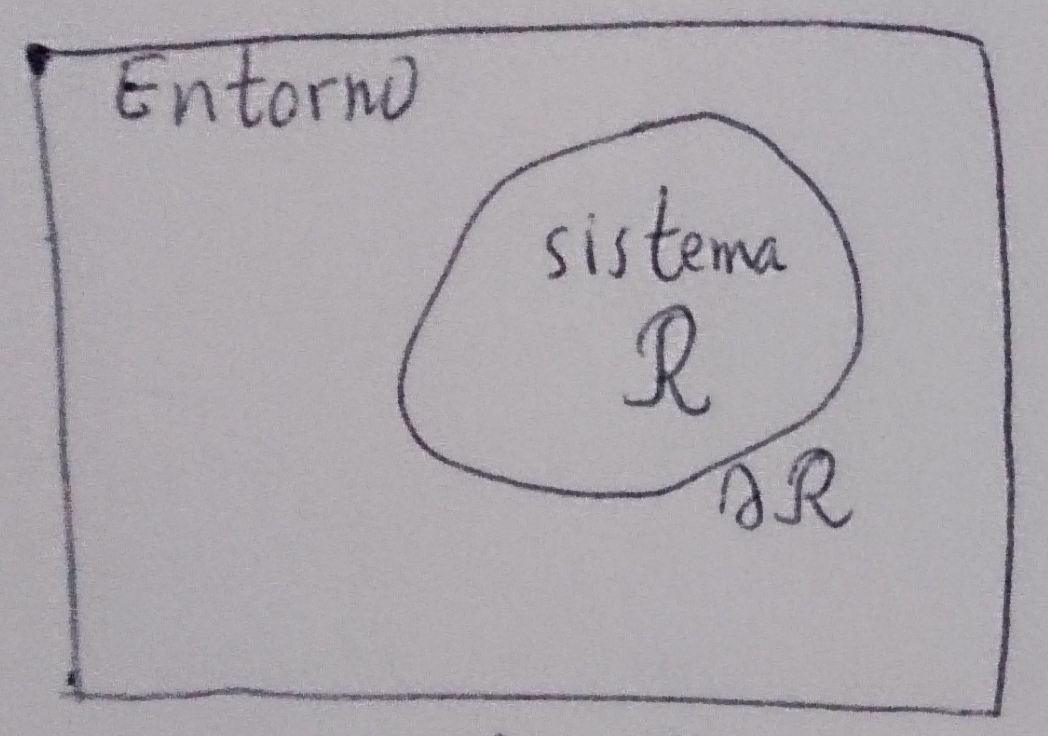 Entorno
sistema
R
∂R